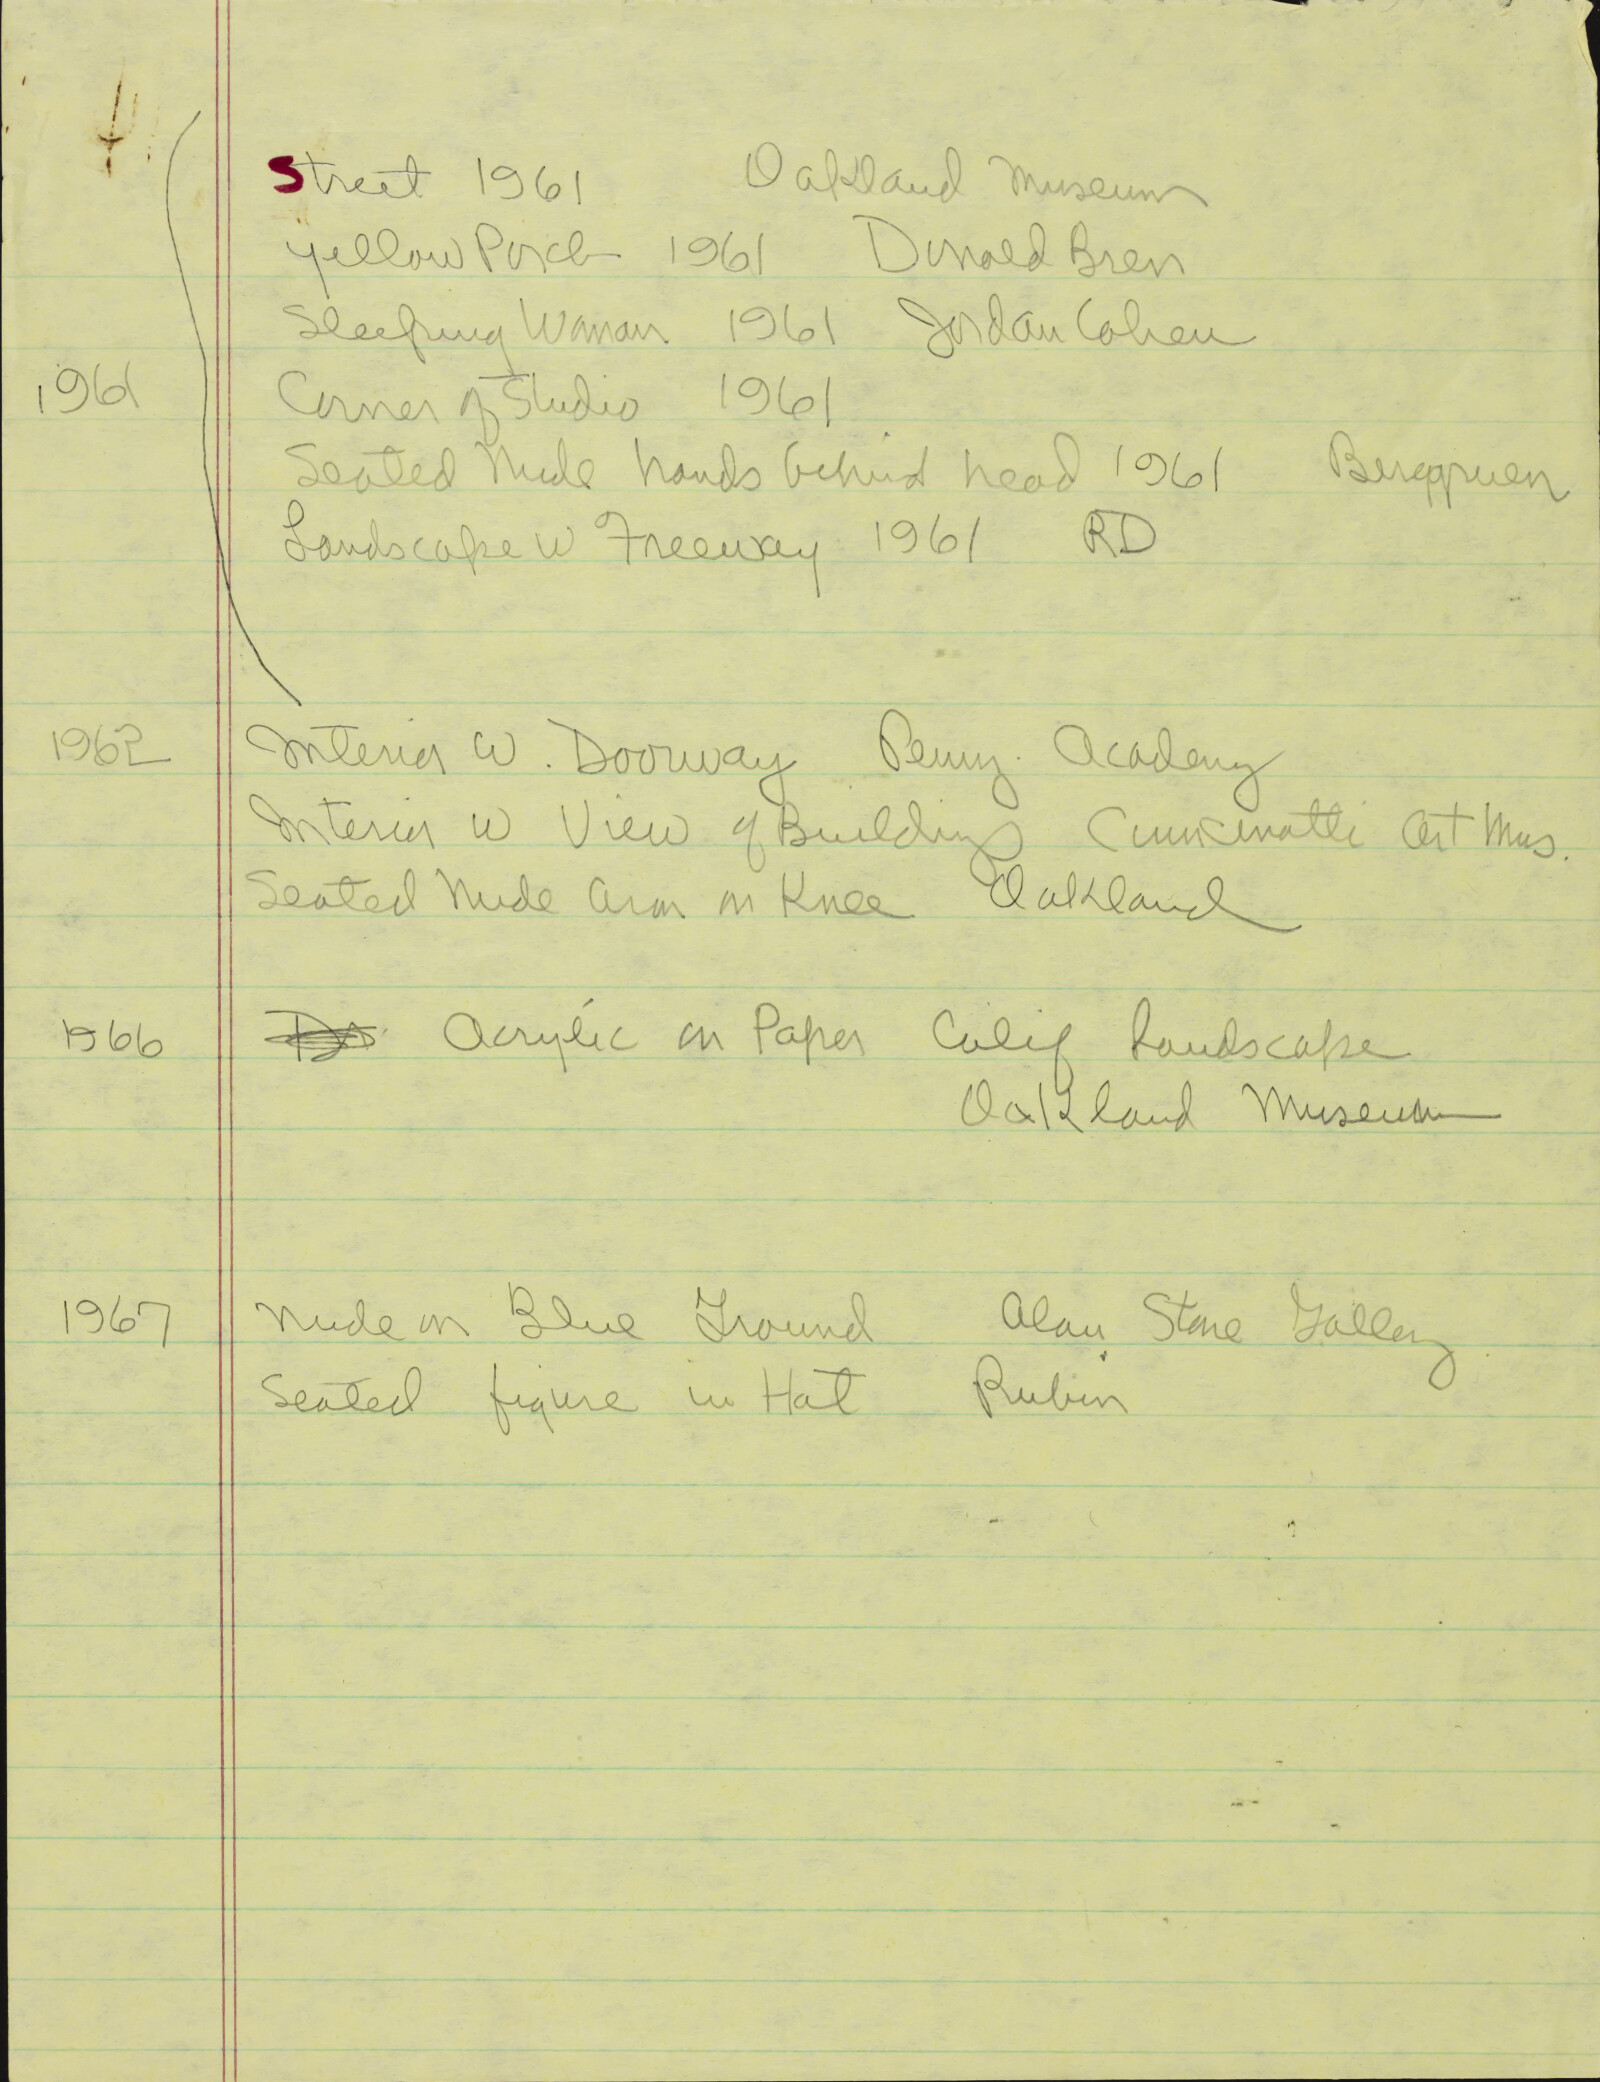 Street 1961 Oakland Museum
Yellow Porch 1961 Donald Bren
Sleeping Woman 1961 Jordan Cohen
1961 Corner of Studio 1961
Seated Nude hands behind head 1961 Berggruen
Landscape w Freeway 1961 RD
1962 Interior w. Doorway Penny. Academy
Interior w View of Buildings Cinncinatti Art Mus.
Seated Nude Arm on Knee Oakland
1966 Acrylic on Paper Calif Landscape
Oakland Museum
1967 Nude on Blue Ground Alan Stone Gallery
Seated figure in Hat Rubin